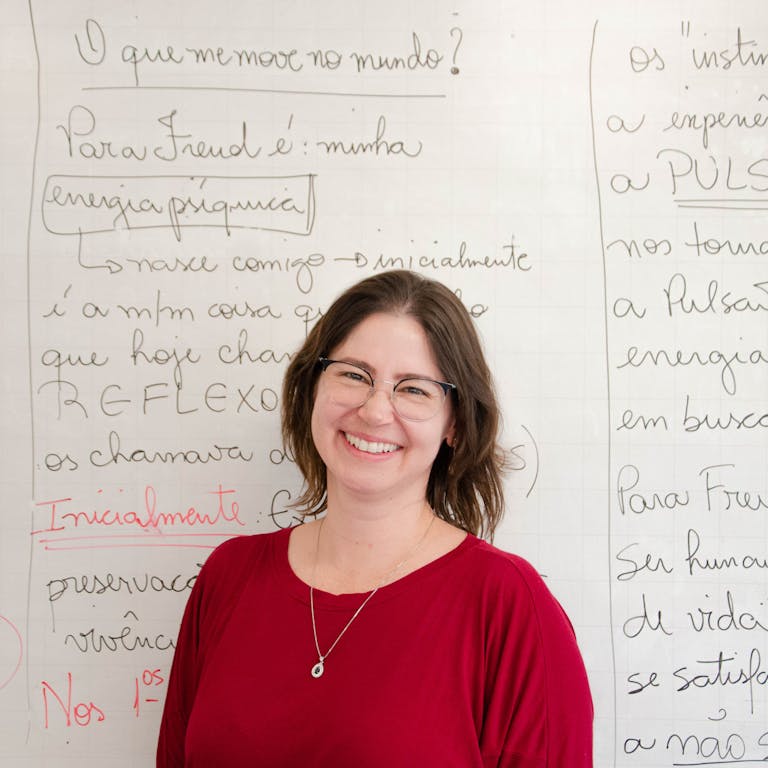 O que me move no mundo?
Para Freud é: minha
energia psíquica
↳ nasce comigo → inicialmente
é a m/m coisa
que hoje
REFLEXO
os chamava
Inicialmente:
Nos 1os
os "instin
a experiê
a PULS
nos torna
a Pulsã
energia
em busca
Para Freu
Ser human
de vida
se satisfa
a não